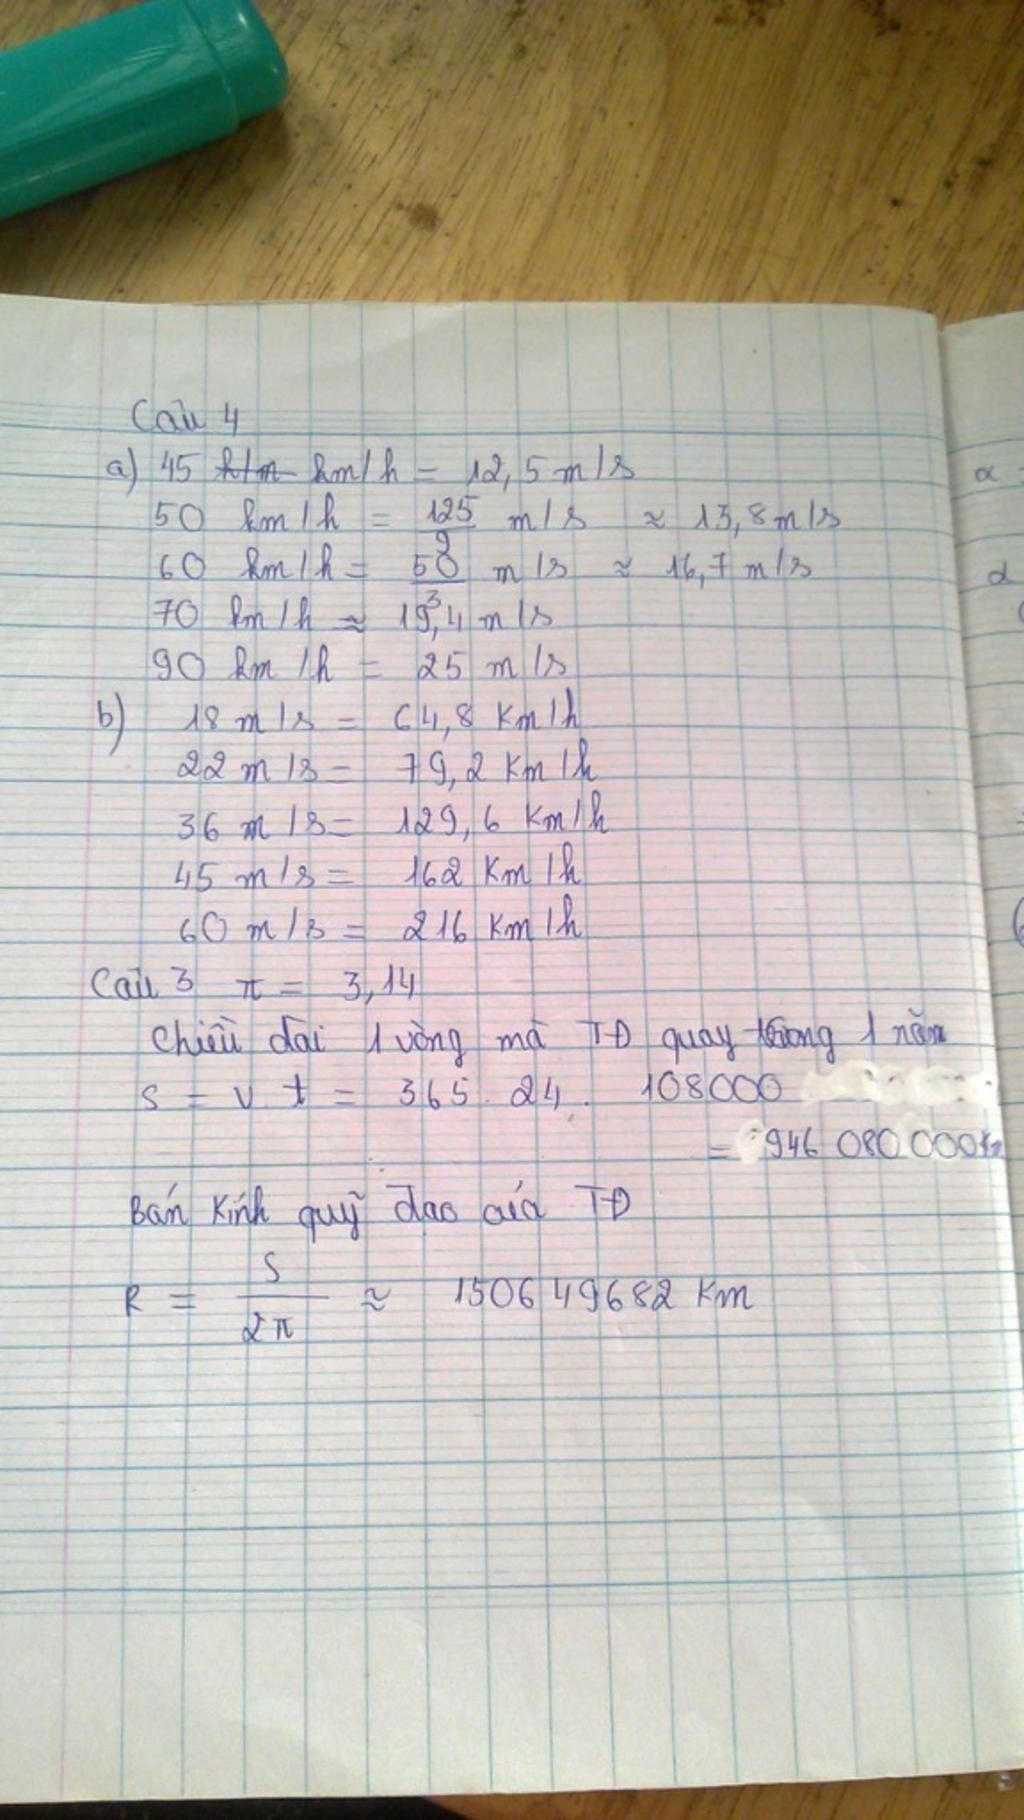 Câu 4
a) 45 km/h = 12,5 m/s
50 km/h = 125/9 m/s ≈ 13,8 m/s
60 km/h = 50/3 m/s ≈ 16,7 m/s
70 km/h ≈ 19,4 m/s
90 km/h = 25 m/s
b) 18 m/s = 64,8 Km/h
22 m/s = 79,2 Km/h
36 m/s = 129,6 Km/h
45 m/s = 162 Km/h
60 m/s = 216 Km/h
Câu 3 π = 3,14
Chiều dài 1 vòng mà TĐ quay trong 1 năm
S = v.t = 365.24.108000
= 946 080 000 Km
Bán Kính quỹ đạo của TĐ
R = S/2π ≈ 150649682 Km